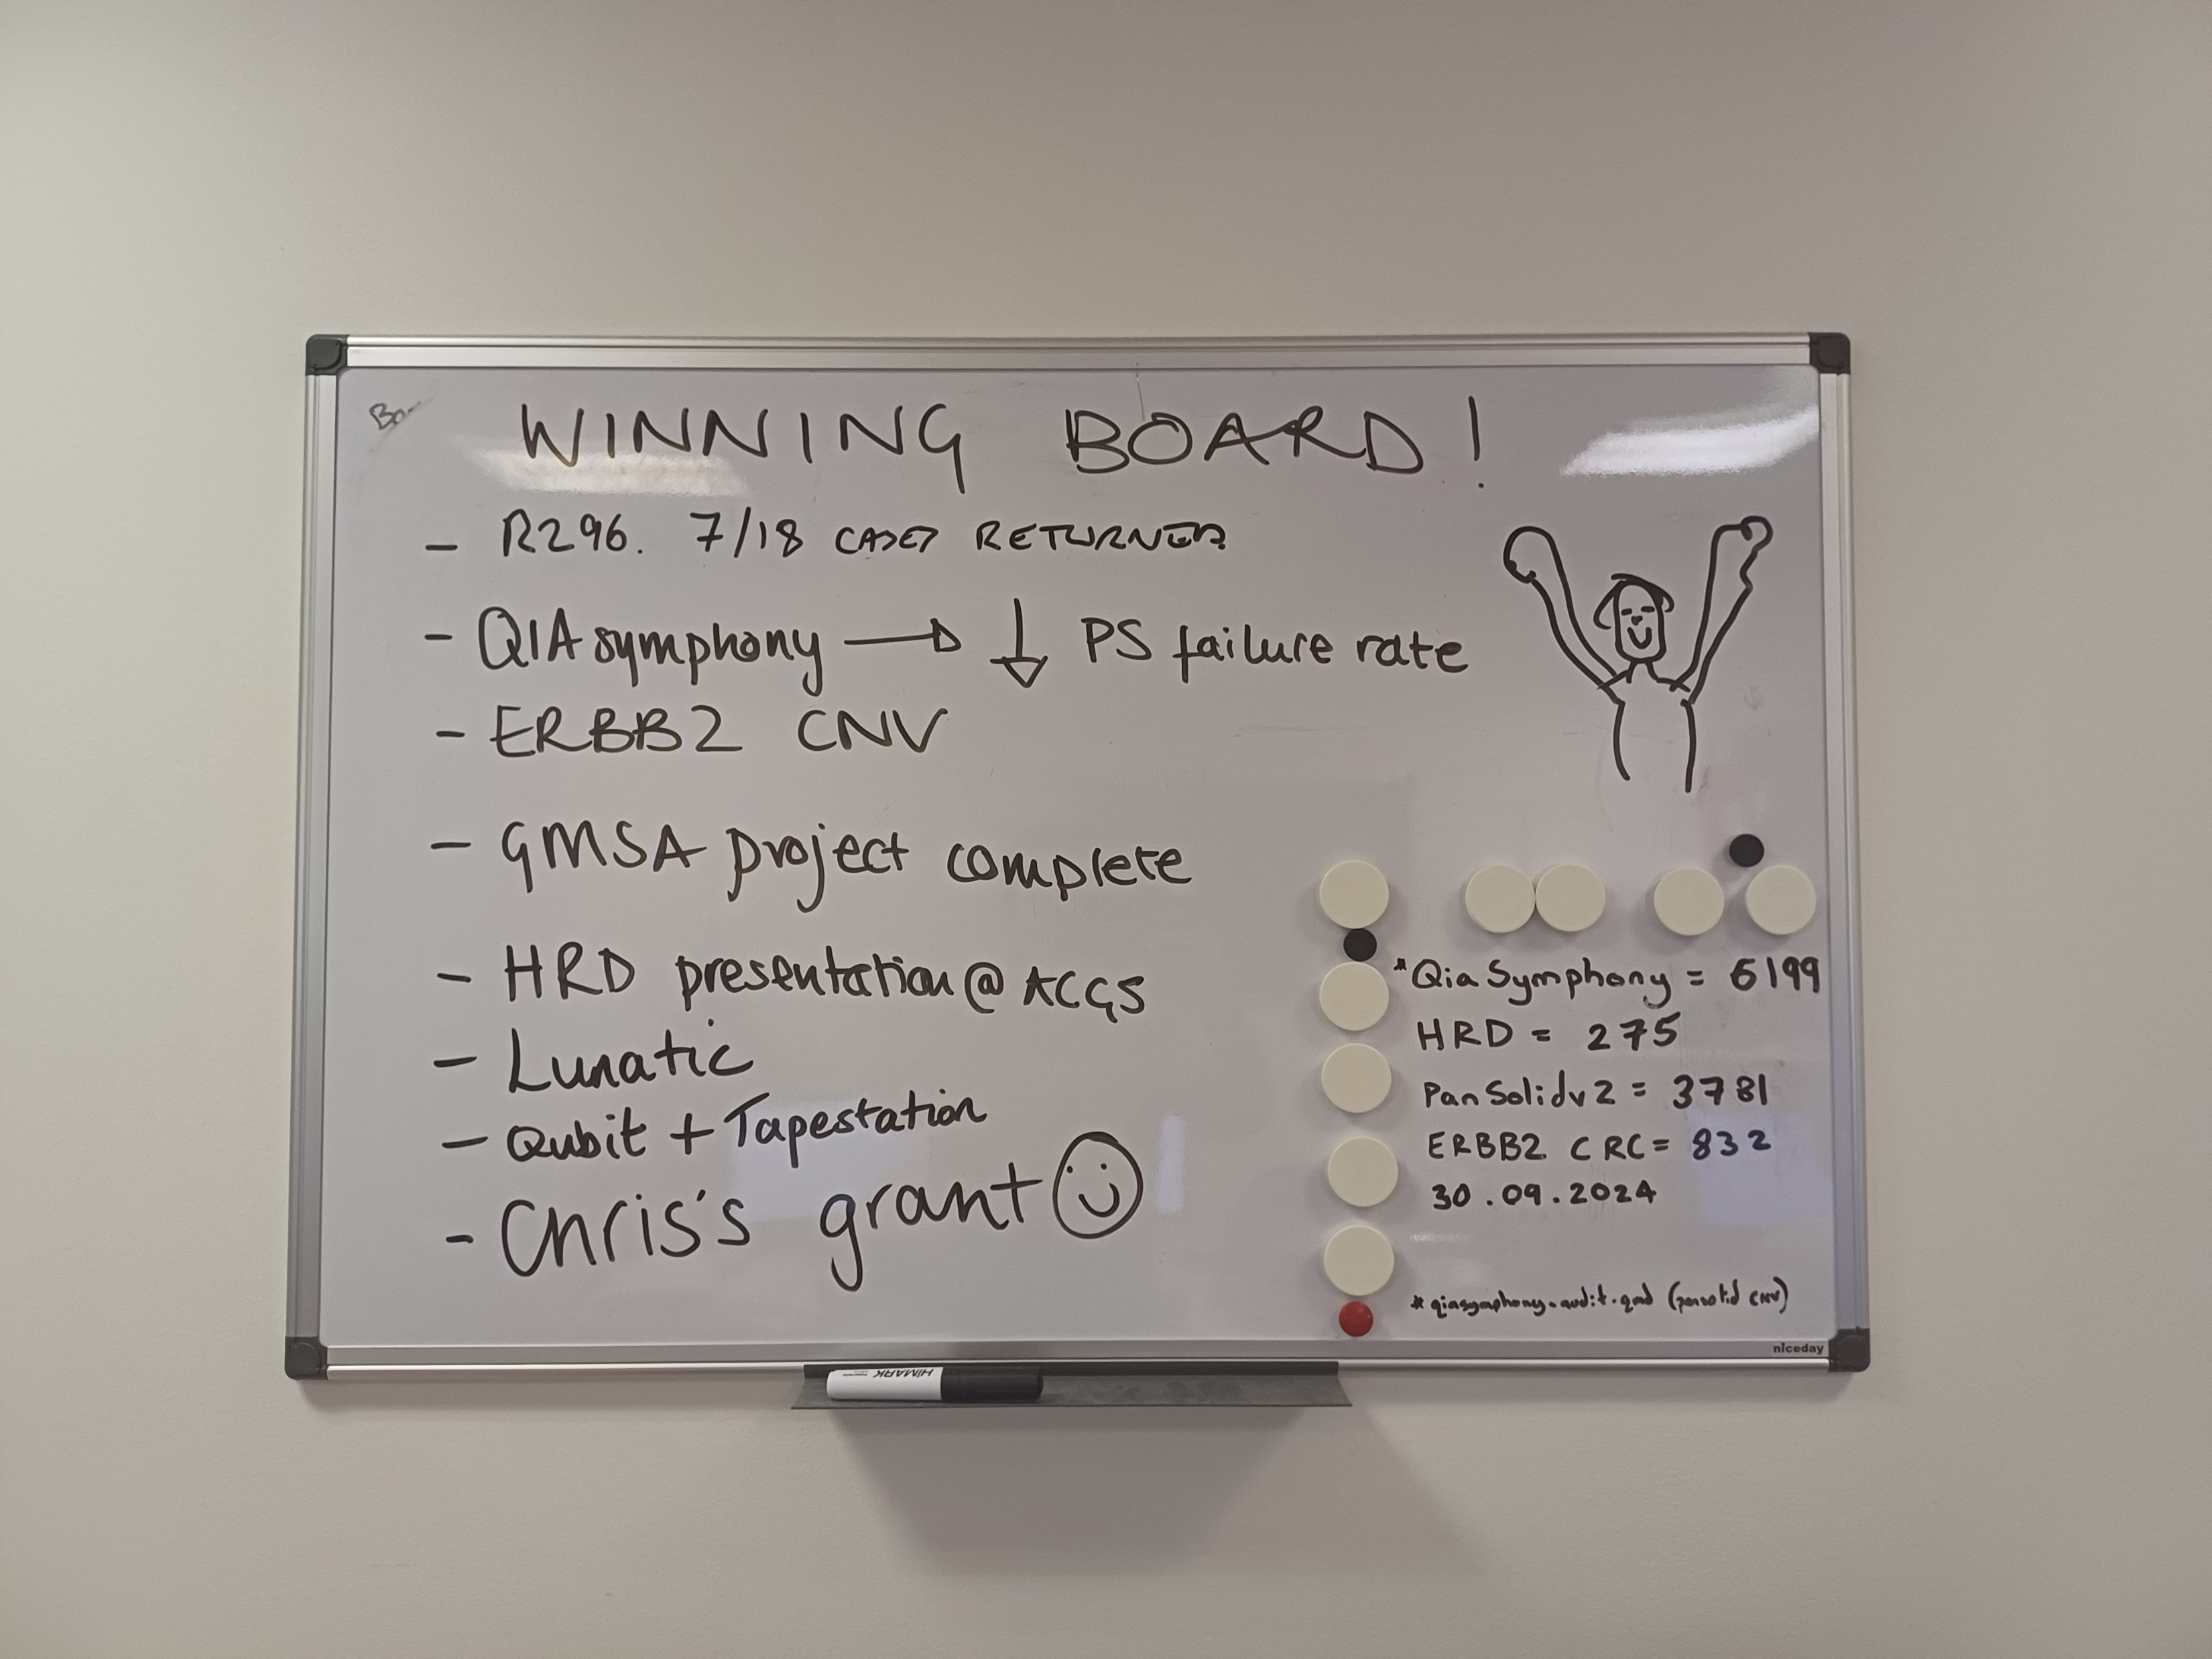 WINNING BOARD!
- R296. 7/18 CASES RETURNED
- QIAsymphony → ↓ PS failure rate
- ERBB2 CNV
- GMSA project complete
- HRD presentation @ ACGS
- Lunatic
- Qubit + Tapestation
- Chris's grant
*Qia Symphony = 6199
HRD = 275
Pan Solid v2 = 3781
ERBB2 CRC = 832
30.09.2024
* qiasymphony-audit.qmd (pansolid CNV)
niceday
HiMARK